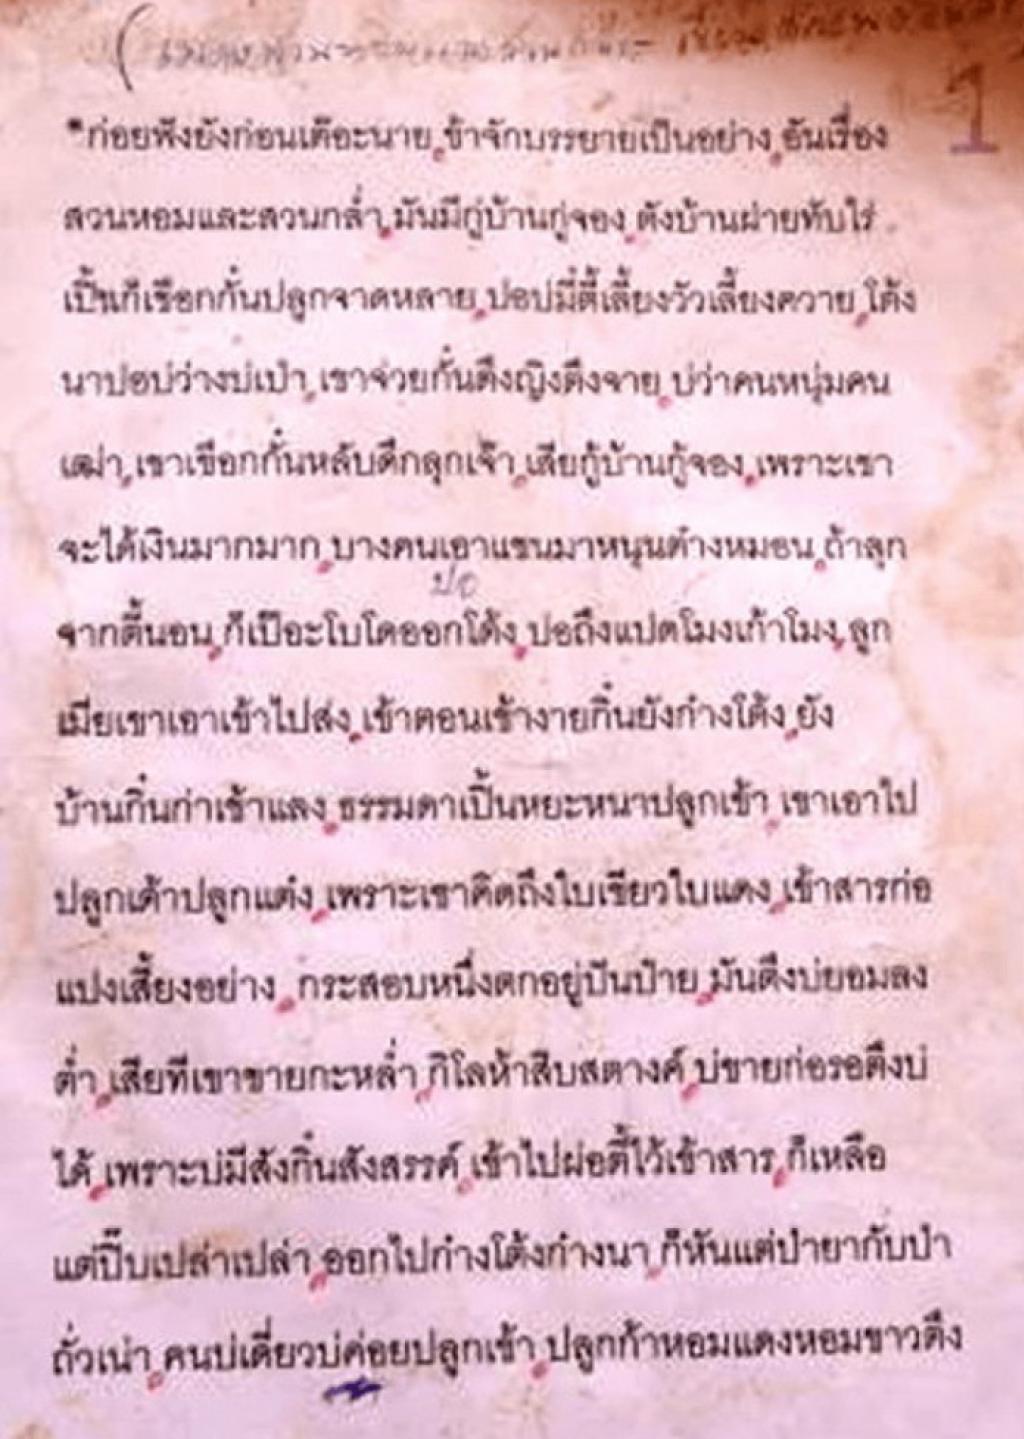 1
*ก่อยฟังยังก่อนเต๊อะนาย ข้าจักบรรยายเป็นอย่าง อันเรื่อง
สวนหอมและสวนกล่ำ มันมีกู่บ้านกู่จอง ดังบ้านฝ่ายทับไร่
เปิ้นก็เชือกกั๋นปลูกจาดหลาย ปอบ่มีตี้เลี้ยงวัวเลี้ยงควาย โต้ง
นาปอบ่ว่างบ่เป่า เขาจ่วยกั๋นตึงญิงตึงจาย บ่ว่าคนหนุ่มคน
เฒ่า เขาเขือกกั๋นหลับดึกลุกเจ๊า เสียกู้บ้านกู้จอง เพราะเขา
จะได้เงินมากมาก บางคนเอาแขนมาหนุนต๋างหมอน ถ้าลุก
ปอ
จากตี้นอน ก็เป๊อะโบโดออกโต้ง ปอถึงแปดโมงเก้าโมง ลูก
เมียเขาเอาเข้าไปส่ง เข้าตอนเช้างายกิ๋นยังก๋างโต้ง ยัง
บ้านกิ๋นก่าเข้าแลง ธรรมดาเปิ้นหยะหนาปลูกเข้า เขาเอาไป
ปลูกเต้าปลูกแต๋ง เพราะเขาคิดถึงใบเขียวใบแดง เข้าสารก่อ
แปงเสี้ยงอย่าง กระสอบหนึ่งตกอยู่ปันป๋าย มันตึงบ่ยอมลง
ต่ำ เสียทีเขาขายกะหล่ำ กิโลห้าสิบสตางค์ บ่ขายก่อรอตึงบ่
ได้ เพราะบ่มีสังกิ๋นสังสรรค์ เข้าไปผ่อตี้ไว้เข้าสาร ก็เหลือ
แต่ปี๊บเปล่าเปล่า ออกไปก๋างโต้งก๋างนา ก็หันแต่ป่ายากับป่า
ถั่วเน่า คนบ่เดี่ยวบ่ค่อยปลูกเข้า ปลูกก้าหอมแดงหอมขาวตึง